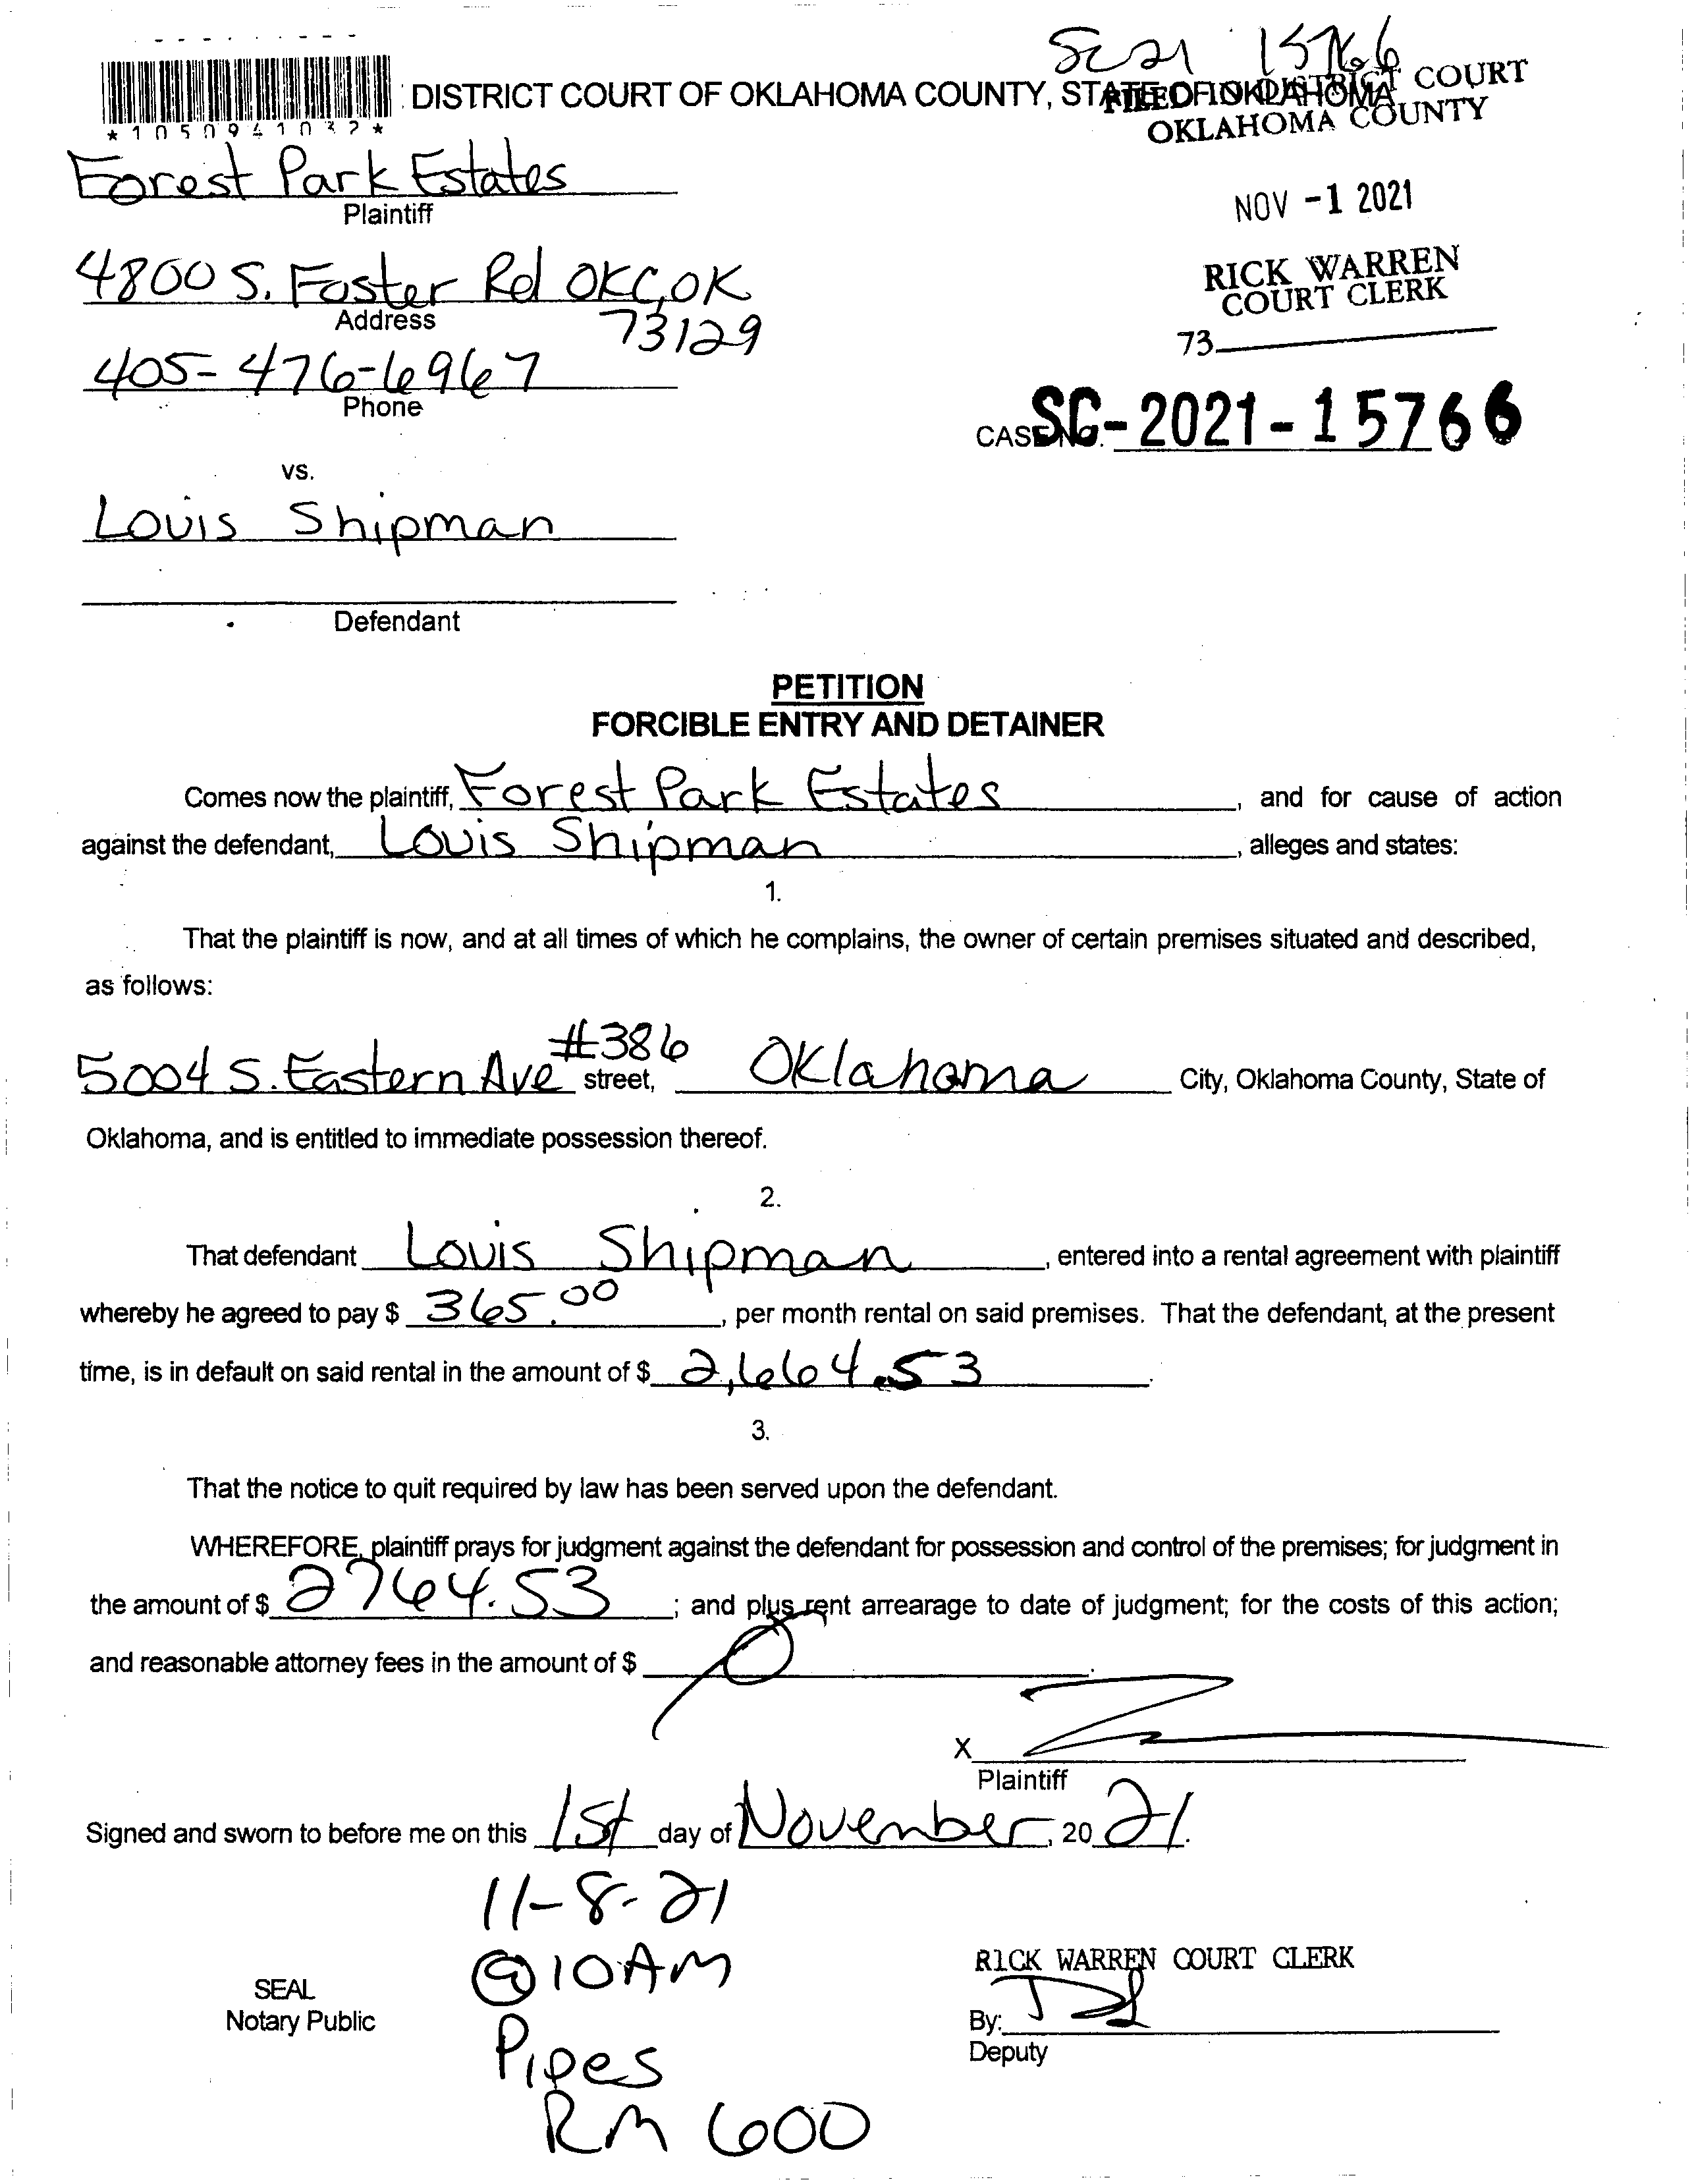 SC21 15766
DISTRICT COURT OF OKLAHOMA COUNTY, STATE OF OKLAHOMA
FILED IN DISTRICT COURT
OKLAHOMA COUNTY
*1050941032*
Forest Park Estates
Plaintiff
NOV -1 2021
4800 S. Foster Rd OKC, OK
73129
Address
RICK WARREN
COURT CLERK
73
405-476-6967
Phone
CASE NO. SC-2021-15766
vs.
Louis Shipman
Defendant
PETITION
FORCIBLE ENTRY AND DETAINER
Comes now the plaintiff, Forest Park Estates, and for cause of action
against the defendant, Louis Shipman, alleges and states:
1.
That the plaintiff is now, and at all times of which he complains, the owner of certain premises situated and described,
as follows:
5004 S. Eastern Ave #386 street, Oklahoma City, Oklahoma County, State of
Oklahoma, and is entitled to immediate possession thereof.
2.
That defendant Louis Shipman, entered into a rental agreement with plaintiff
whereby he agreed to pay $ 365.00, per month rental on said premises. That the defendant, at the present
time, is in default on said rental in the amount of $ 2,664.53.
3.
That the notice to quit required by law has been served upon the defendant.
WHEREFORE, plaintiff prays for judgment against the defendant for possession and control of the premises; for judgment in
the amount of $ 2764.53; and plus rent arrearage to date of judgment; for the costs of this action;
and reasonable attorney fees in the amount of $ 0.
X
Plaintiff
Signed and sworn to before me on this 1st day of November, 2021.
11-8-21
@10AM
Pipes
RM 600
SEAL
Notary Public
RICK WARREN COURT CLERK
By:
Deputy